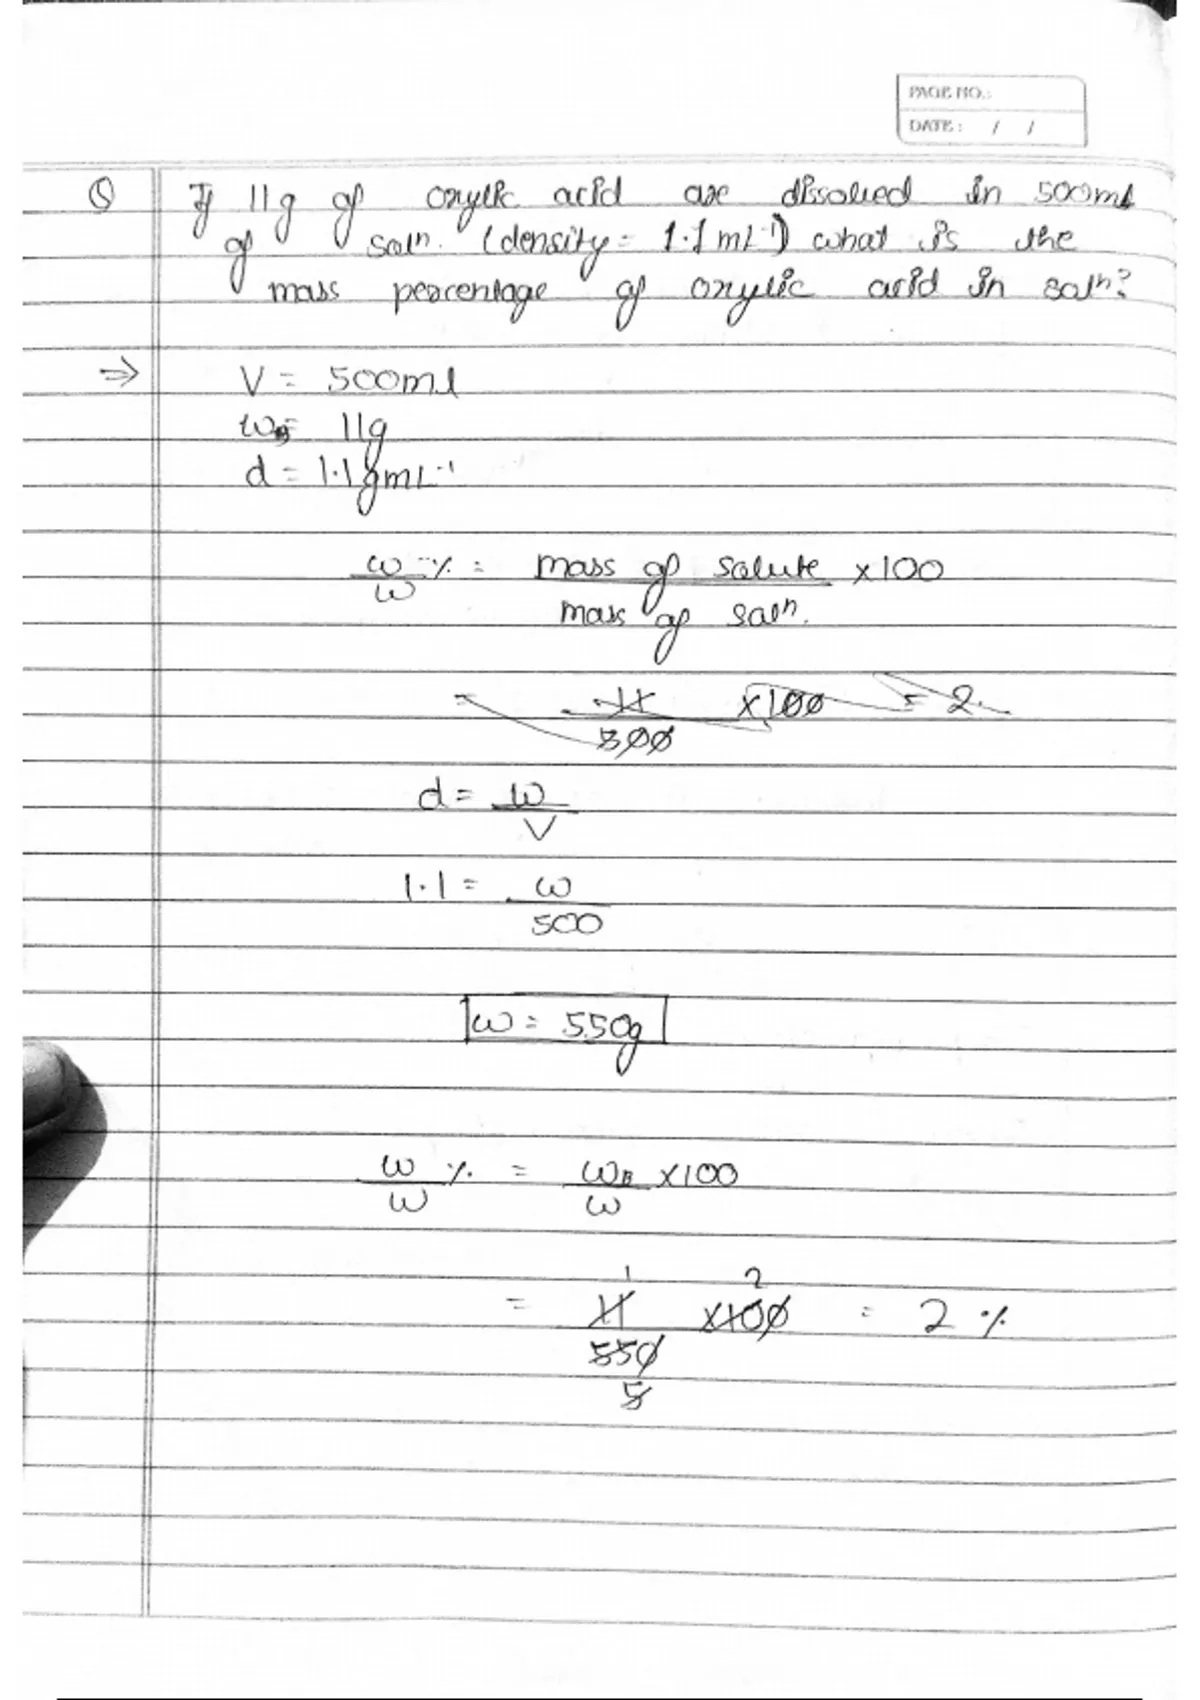 PAGE NO.:
DATE: / /
Q If 11g of oxylic acid are dissolved in 500mL
of soln. (density = 1.1 mL⁻¹) what is the
mass percentage of oxylic acid in soln?
⇒ V = 500ml
w_B = 11g
d = 1.1 gmL⁻¹
w/w % = mass of solute / mass of soln. × 100
= 11/500 × 100 = 2.
d = w/V
1.1 = w/500
w = 550g
w/w % = w_B/w × 100
= 11/550 × 100 = 2 %
1 2
5